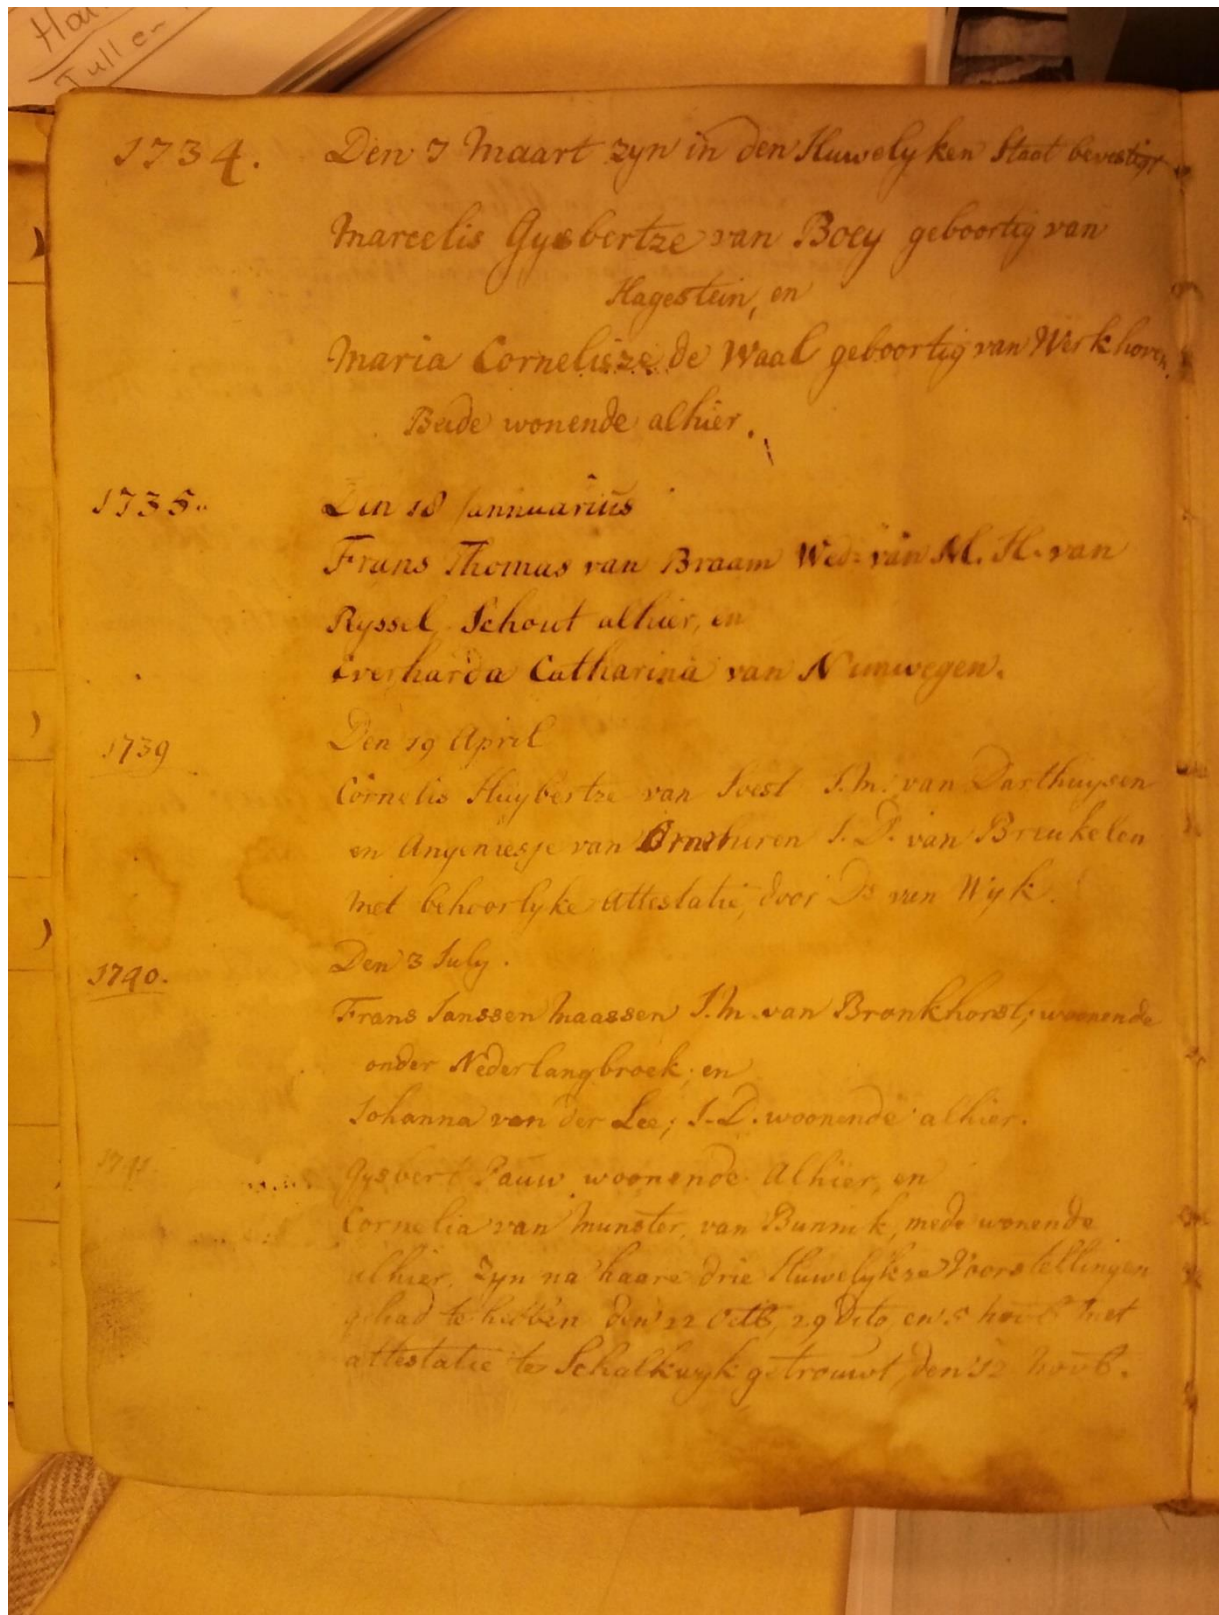 Tull en
1734. Den 7 Maart zyn in den Huwelyken Staat bevestigt
Marcelis Gysbertze van Boey geboortig van
Hagestein, en
Maria Cornelisze de Waal geboortig van Werkhoven.
Beide wonende alhier.
1735. Den 18 Jannuarius
Frans Thomas van Braam Wed: van M. H. van
Ryssel Schout alhier, en
Everharda Catharina van Nimwegen.
1739 Den 19 April
Cornelis Huybertze van Soest J.M. van Darthuysen
en Angeniesje van J.D. van Breukelen
met behoorlyke attestatie, door Ds van Wyk.
1740. Den 3 July.
Frans Janssen Maassen J.M. van Bronkhorst, woonende
onder Nederlangbroek, en
Johanna van der Lee; J.D. woonende alhier.
1741. Gysbert Pauw woonende Alhier, en
Cornelia van Munster, van Bunnik, mede wonende
alhier, zyn na haare drie Huwelykse Voorstellingen
gehad te hebben den 22 Octb, 29 Dito, en 5 Novb met
attestatie te Schalkwyk getrouwt, den 12 Novb.